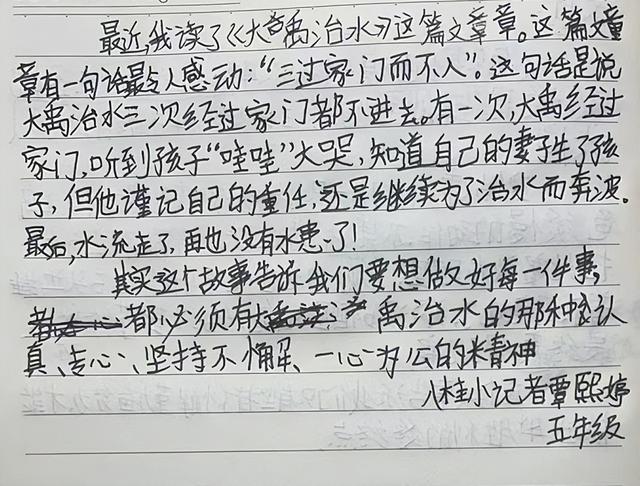 最近,我读了《大禹治水》这篇文章章。这篇文章
章有一句话最令人感动:“三过家门而不入”。这句话是说
大禹治水三次经过家门都不进去。有一次,大禹经过
家门,听到孩子“哇哇”大哭,知道自己的妻子生了孩
子,但他谨记自己的重任,还是继续为了治水而奔波。
最后,水流走了,再也没有水患了!
其实这个故事告诉我们要想做好每一件事,
都必须有大禹治水的那种认
真、专心、坚持不懈、一心为公的精神
八桂小记者覃熙婷
五年级